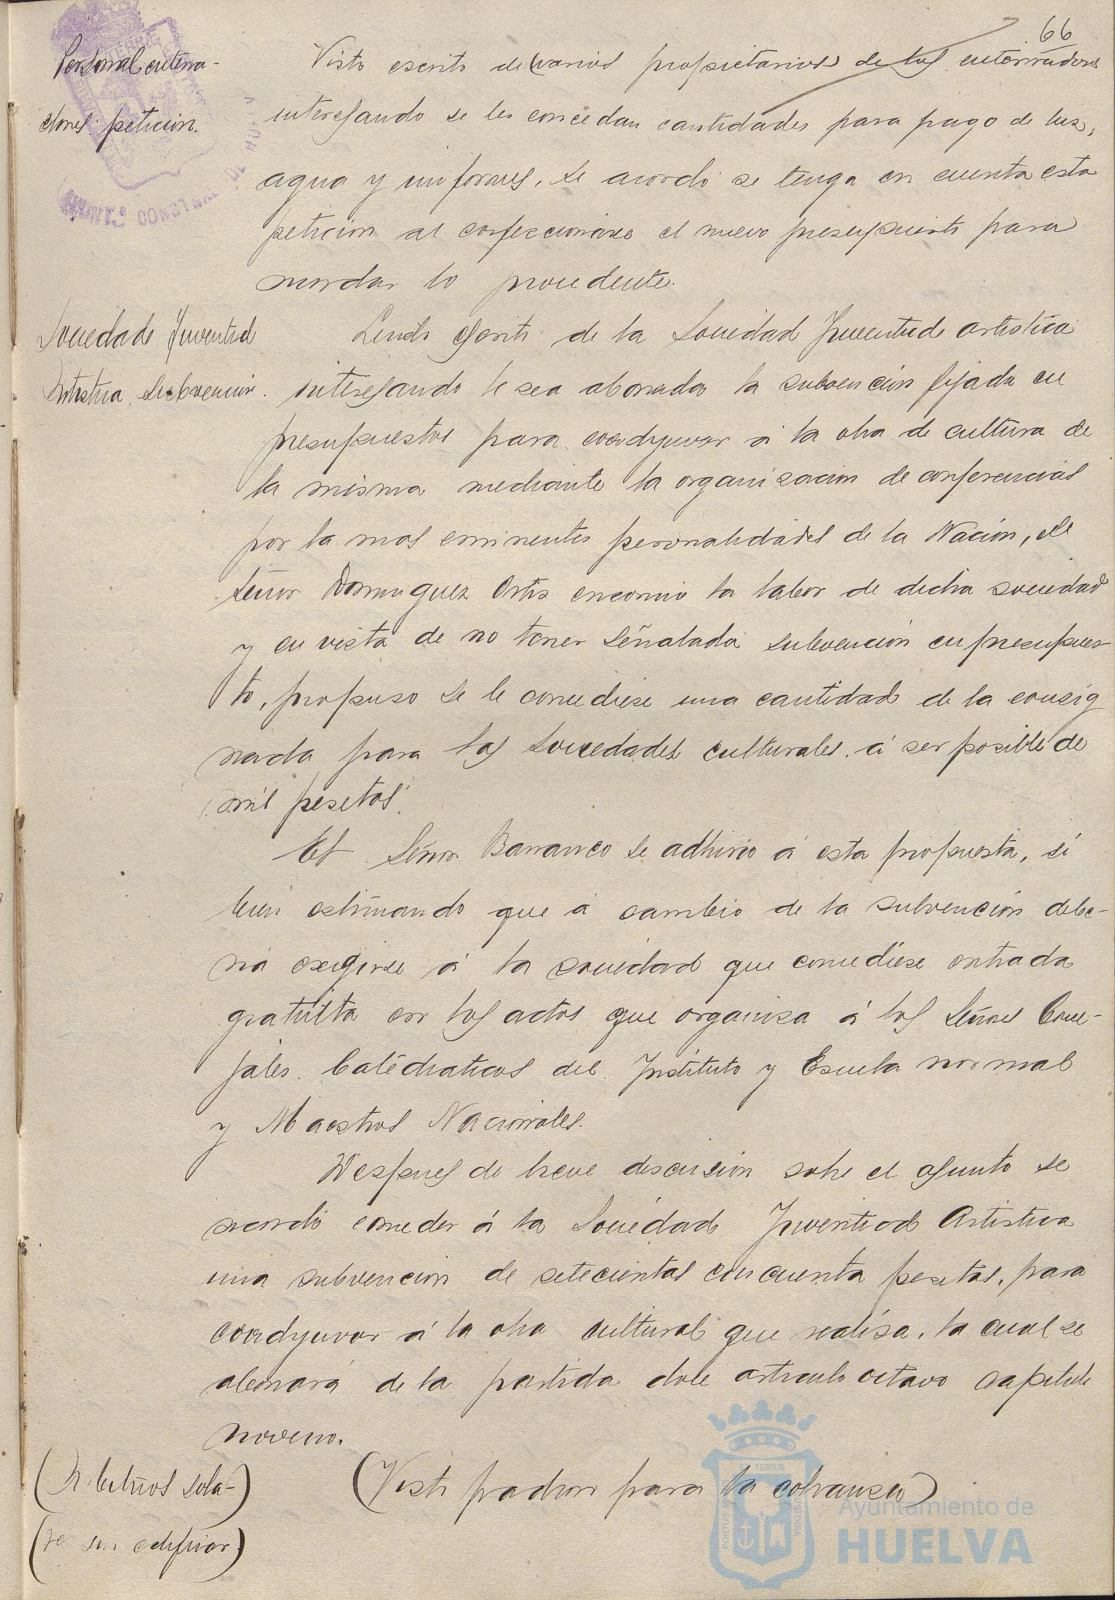 66
Personal enterra-
dores petición.
Visto escrito de varios propietarios de los enterradores
interesando se les concedan cantidades para pago de luz,
agua y uniformes, se acordó se tenga en cuenta esta
petición al confeccionarse el nuevo presupuesto para
acordar lo procedente.
Sociedad Juventud
Artística. Subvención.
Leido escrito de la Sociedad Juventud artística
interesando le sea abonada la subvención fijada en
presupuestos para coadyuvar á la obra de cultura de
la misma mediante la organización de conferencias
por la mas eminentes personalidades de la Nación, el
Señor Dominguez Ortis encomió la labor de dicha sociedad
y en vista de no tener señalada subvención en presupues-
to, propuso se le concediese una cantidad de la consig
nada para las sociedades culturales, á ser posible de
mil pesetas.
El Señor Barranco se adhirió á esta propuesta, si
bien estimando que á cambio de la subvención debe-
ria exigirse á la sociedad que concediese entrada
gratuita en los actos que organiza á los Señores Conce-
jales, Catédraticos del Instituto y Escuela normal
y Maestros Nacionales.
Despues de breve discusión sobre el asunto se
acordó conceder á la Sociedad Juventud Artística
una subvención de setecientas cincuenta pesetas, para
coadyuvar á la obra cultural que realiza, la cual se
abonará de la partida doce articulo octavo capitulo
noveno.
(Arbitrios sola-)
(res sin edificar)
(Visto padron para la cobranza)
Ayuntamiento de
HUELVA